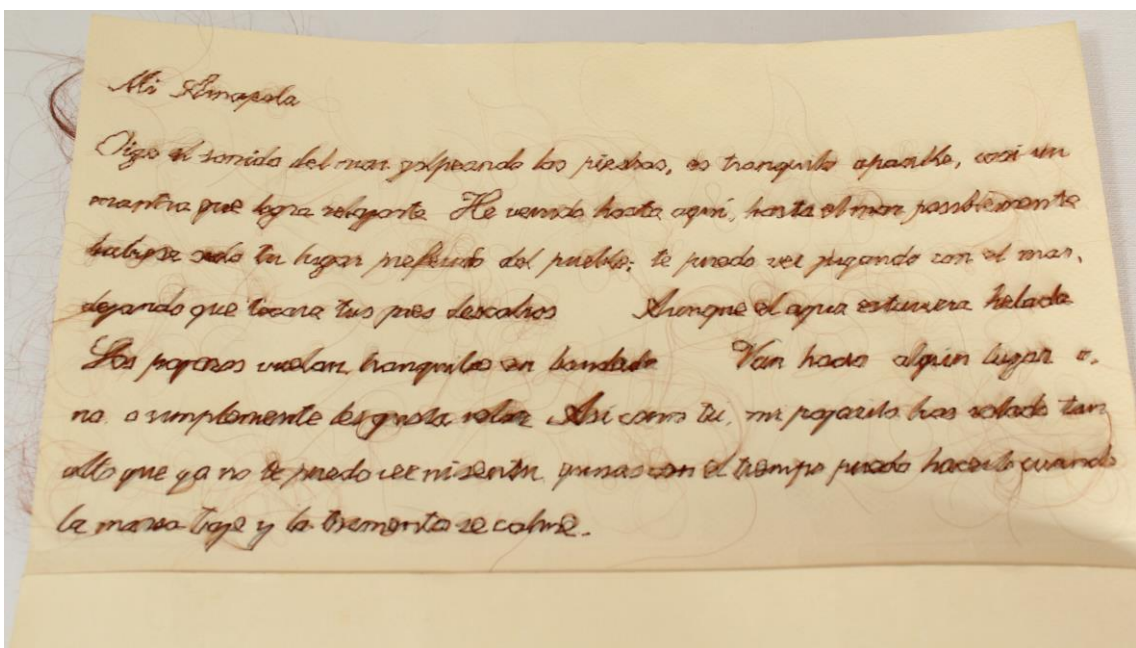 Mi Amapola
Oigo el sonido del mar golpeando las piedras, es tranquilo apasible, casi un
mantra que logra relajarte He venido hasta aquí, hasta el mar posiblemente
hubiese sido tu lugar preferido del pueblo; te puedo ver jugando con el mar,
dejando que tocara tus pies descalsos Aunque el agua estuviera helada
Los pajaros vuelan, tranquilos en bandada Van hacia algun lugar o
no, o simplemente les gusta volar Asi como tu, mi pajarito has volado tan
alto que ya no te puedo ver ni sentir, quisas con el tiempo pueda hacerlo cuando
la marea baje y la tormenta se calme.